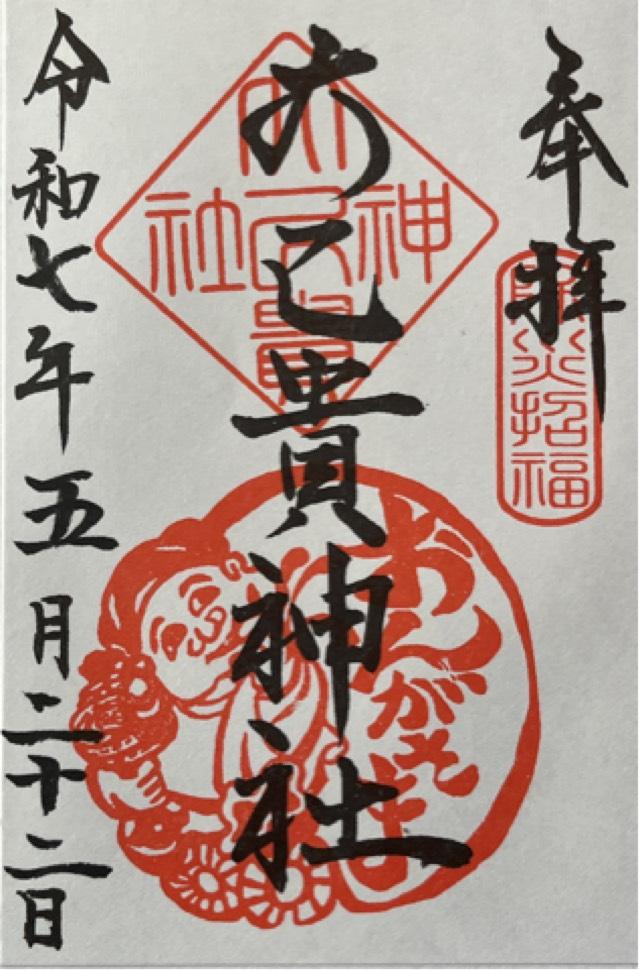 奉拝
除災招福
大己貴神社
大己貴神社
おんがさま
令和七年五月二十二日